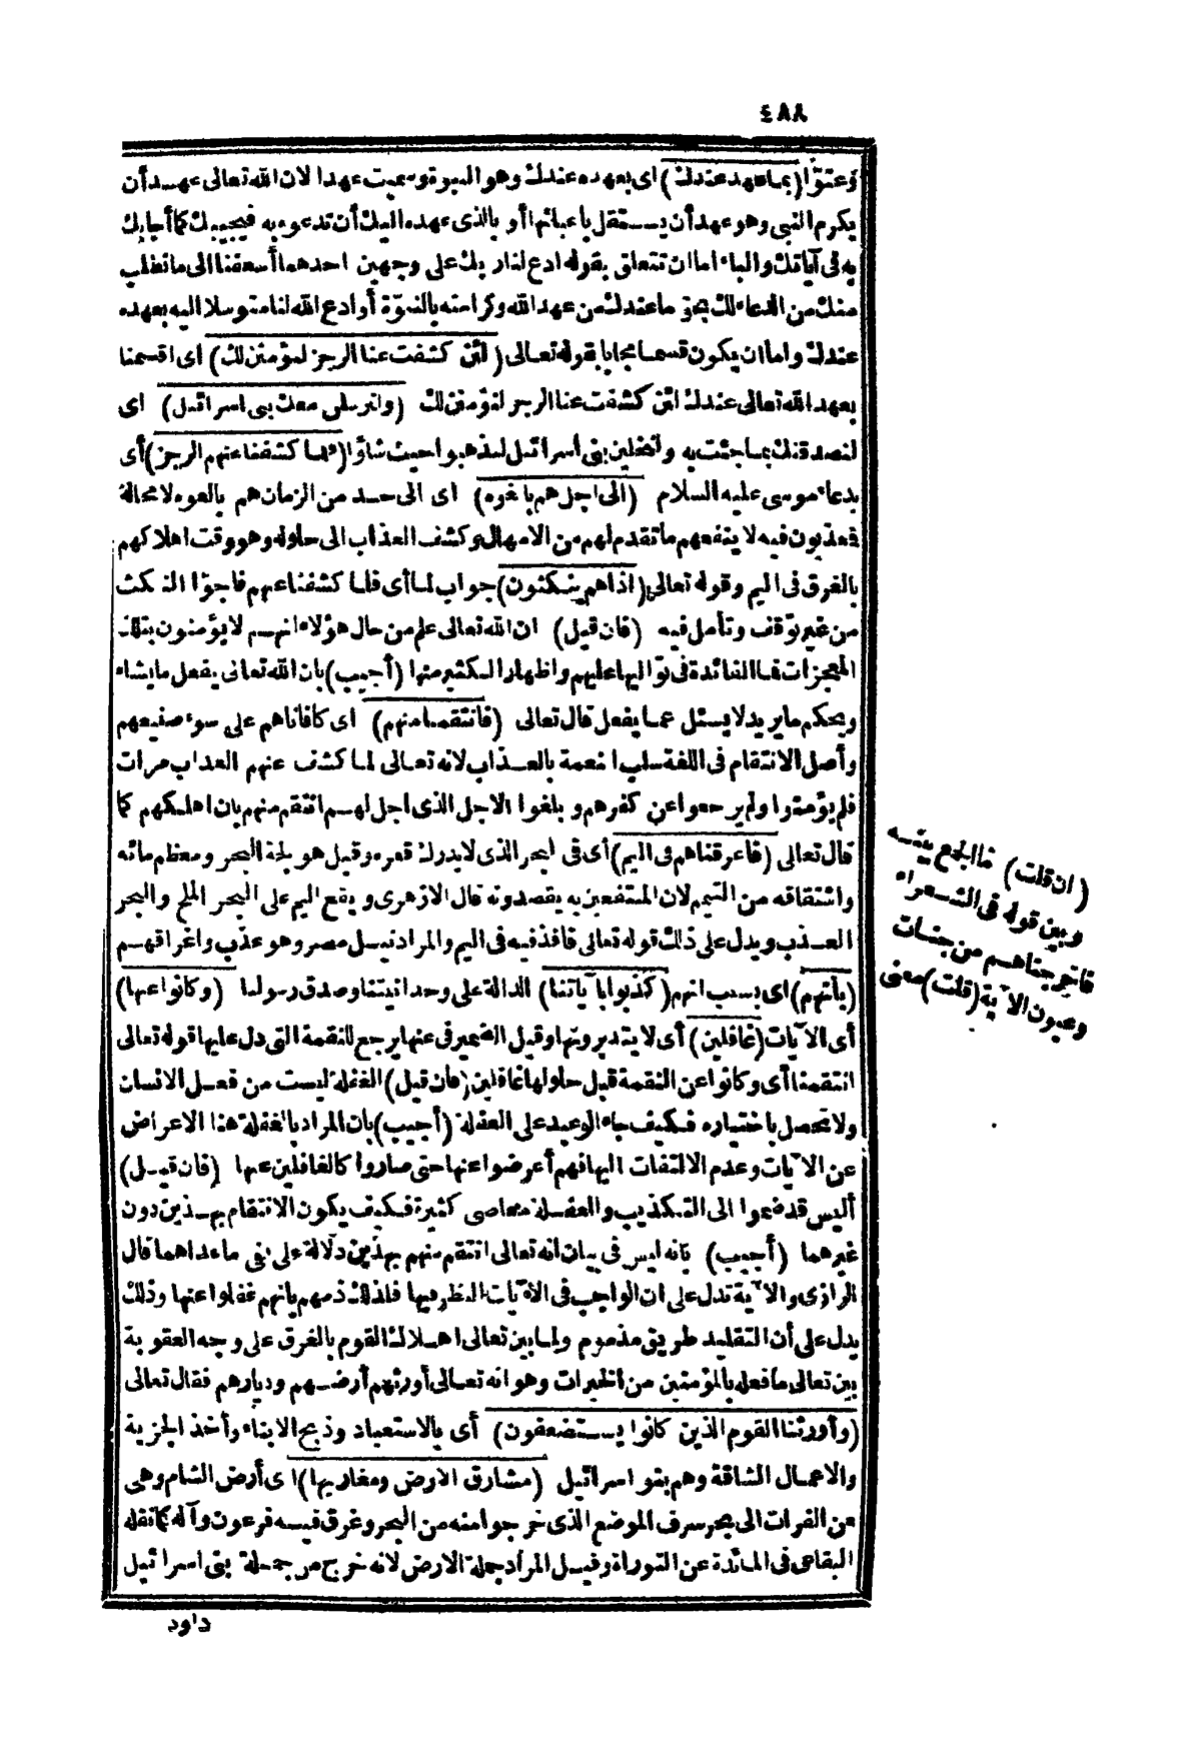 ٤٨٨
وعتوّا (بما عهد عندك) اى بعهده عندك وهو النبوة وسميت عهدا لان الله تعالى عهد أن
يكرم النبى وهو عهد أن يستقل باعبائها أو بالذى عهده اليك أن تدعوه به فيجيبك كما أجابك
به فى آياتك والباء اما ان تتعلق بقوله ادع لنا ربك على وجهين احدهما أسعفنا الى ما نطلب
منك من الدعاء لك بحق ما عندك من عهد الله وكرامته بالنبوّة أو ادع الله لنا متوسلا اليه بعهده
عندك واما ان يكون قسما مجابا بقوله تعالى (لئن كشفت عنا الرجز لنؤمنن لك) اى اقسمنا
بعهد الله تعالى عندك لئن كشفت عنا الرجز لنؤمنن لك (ولنرسلن معك بنى اسرائيل) اى
لنصدقنك بما جئت به ولنخلين بنى اسرائيل ليذهبوا حيث شاؤا (فلما كشفنا عنهم الرجز) أى
بدعاء موسى عليه السلام (الى اجل هم بالغوه) اى الى حد من الزمان هم بالغوه لا محالة
فمعذبون فيه لا ينفعهم ما تقدم لهم من الامهال وكشف العذاب الى حلوله وهو وقت اهلاكهم
بالغرق فى اليم وقوله تعالى (اذا هم ينكثون) جواب لما أى فلما كشفنا عنهم فاجوّا النكث
من غير توقف وتأمل فيه (فان قيل) ان الله تعالى علم من حال هؤلاء انهم لا يؤمنون بتلك
المعجزات فما الفائدة فى تواليها عليهم واظهار الكثير منها (أجيب) بان الله تعالى يفعل ما يشاء
ويحكم ما يريد لا يسئل عما يفعل قال تعالى (فانتقمنا منهم) اى كافاناهم على سوء صنيعهم
وأصل الانتقام فى اللغة سلب النعمة بالعذاب لانه تعالى لما كشف عنهم العذاب مرات
فلم يؤمنوا ولم يرجعوا عن كفرهم وبلغوا الاجل الذى اجل لهم انتقم منهم بان اهلكهم كما
قال تعالى (فاغرقناهم فى اليم) أى فى البحر الذى لا يدرك قعره وقيل هو لجة البحر ومعظم مائه
واشتقاقه من التيمم لان المنتفعين به يقصدونه قال الازهرى ويقع اليم على البحر الملح والبحر
العذب ويدل على ذلك قوله تعالى فاقذفيه فى اليم والمراد نيل مصر وهو عذب واغراقهم
(بأنهم) اى بسبب انهم (كذبوا بآياتنا) الدالة على وحدانيتنا وصدق رسولنا (وكانوا عنها)
أى الآيات (غافلين) أى لا يتدبرونها وقيل الضمير فى عنها يرجع للنقمة التى دل عليها قوله تعالى
انتقمنا أى وكانوا عن النقمة قبل حلولها غافلين (فان قيل) الغفلة ليست من فعل الانسان
ولا تحصل باختياره فكيف جاء الوعيد على الغفلة (أجيب) بان المراد بالغفلة هنا الاعراض
عن الآيات وعدم الالتفات اليها فهم أعرضوا عنها حتى صاروا كالغافلين عنها (فان قيل)
أليس قد ضموا الى التكذيب والغفلة معاصى كثيرة فكيف يكون الانتقام بهذين دون
غيرهما (أجيب) بانه ليس فى بيان انه تعالى انتقم منهم بهذين دلالة على نفى ما عداهما قال
الرازى والآية تدل على ان الواجب فى الآيات النظر فيها فلذلك ذمهم بانهم غفلوا عنها وذلك
يدل على أن التقليد طريق مذموم ولما بين تعالى اهلاك القوم بالغرق على وجه العقوبة
بين تعالى ما فعله بالمؤمنين من الخيرات وهو انه تعالى أورثهم أرضهم وديارهم فقال تعالى
(وأورثنا القوم الذين كانوا يستضعفون) أى بالاستعباد وذبح الابناء وأخذ الجزية
والاعمال الشاقة وهم بنو اسرائيل (مشارق الارض ومغاربها) اى أرض الشام وهى
من الفرات الى بحر سرف الموضع الذى خرجوا منه من البحر وغرق فيه فرعون وآله كما نقله
البقاعى فى المائدة عن التوراة وقيل المراد جملة الارض لانه خرج من جملة بنى اسرائيل
داود
(ان قلت) فما الجمع بينه
وبين قوله فى الشعراء
فاخرجناهم من جنات
وعيون الآية (قلت) معنى